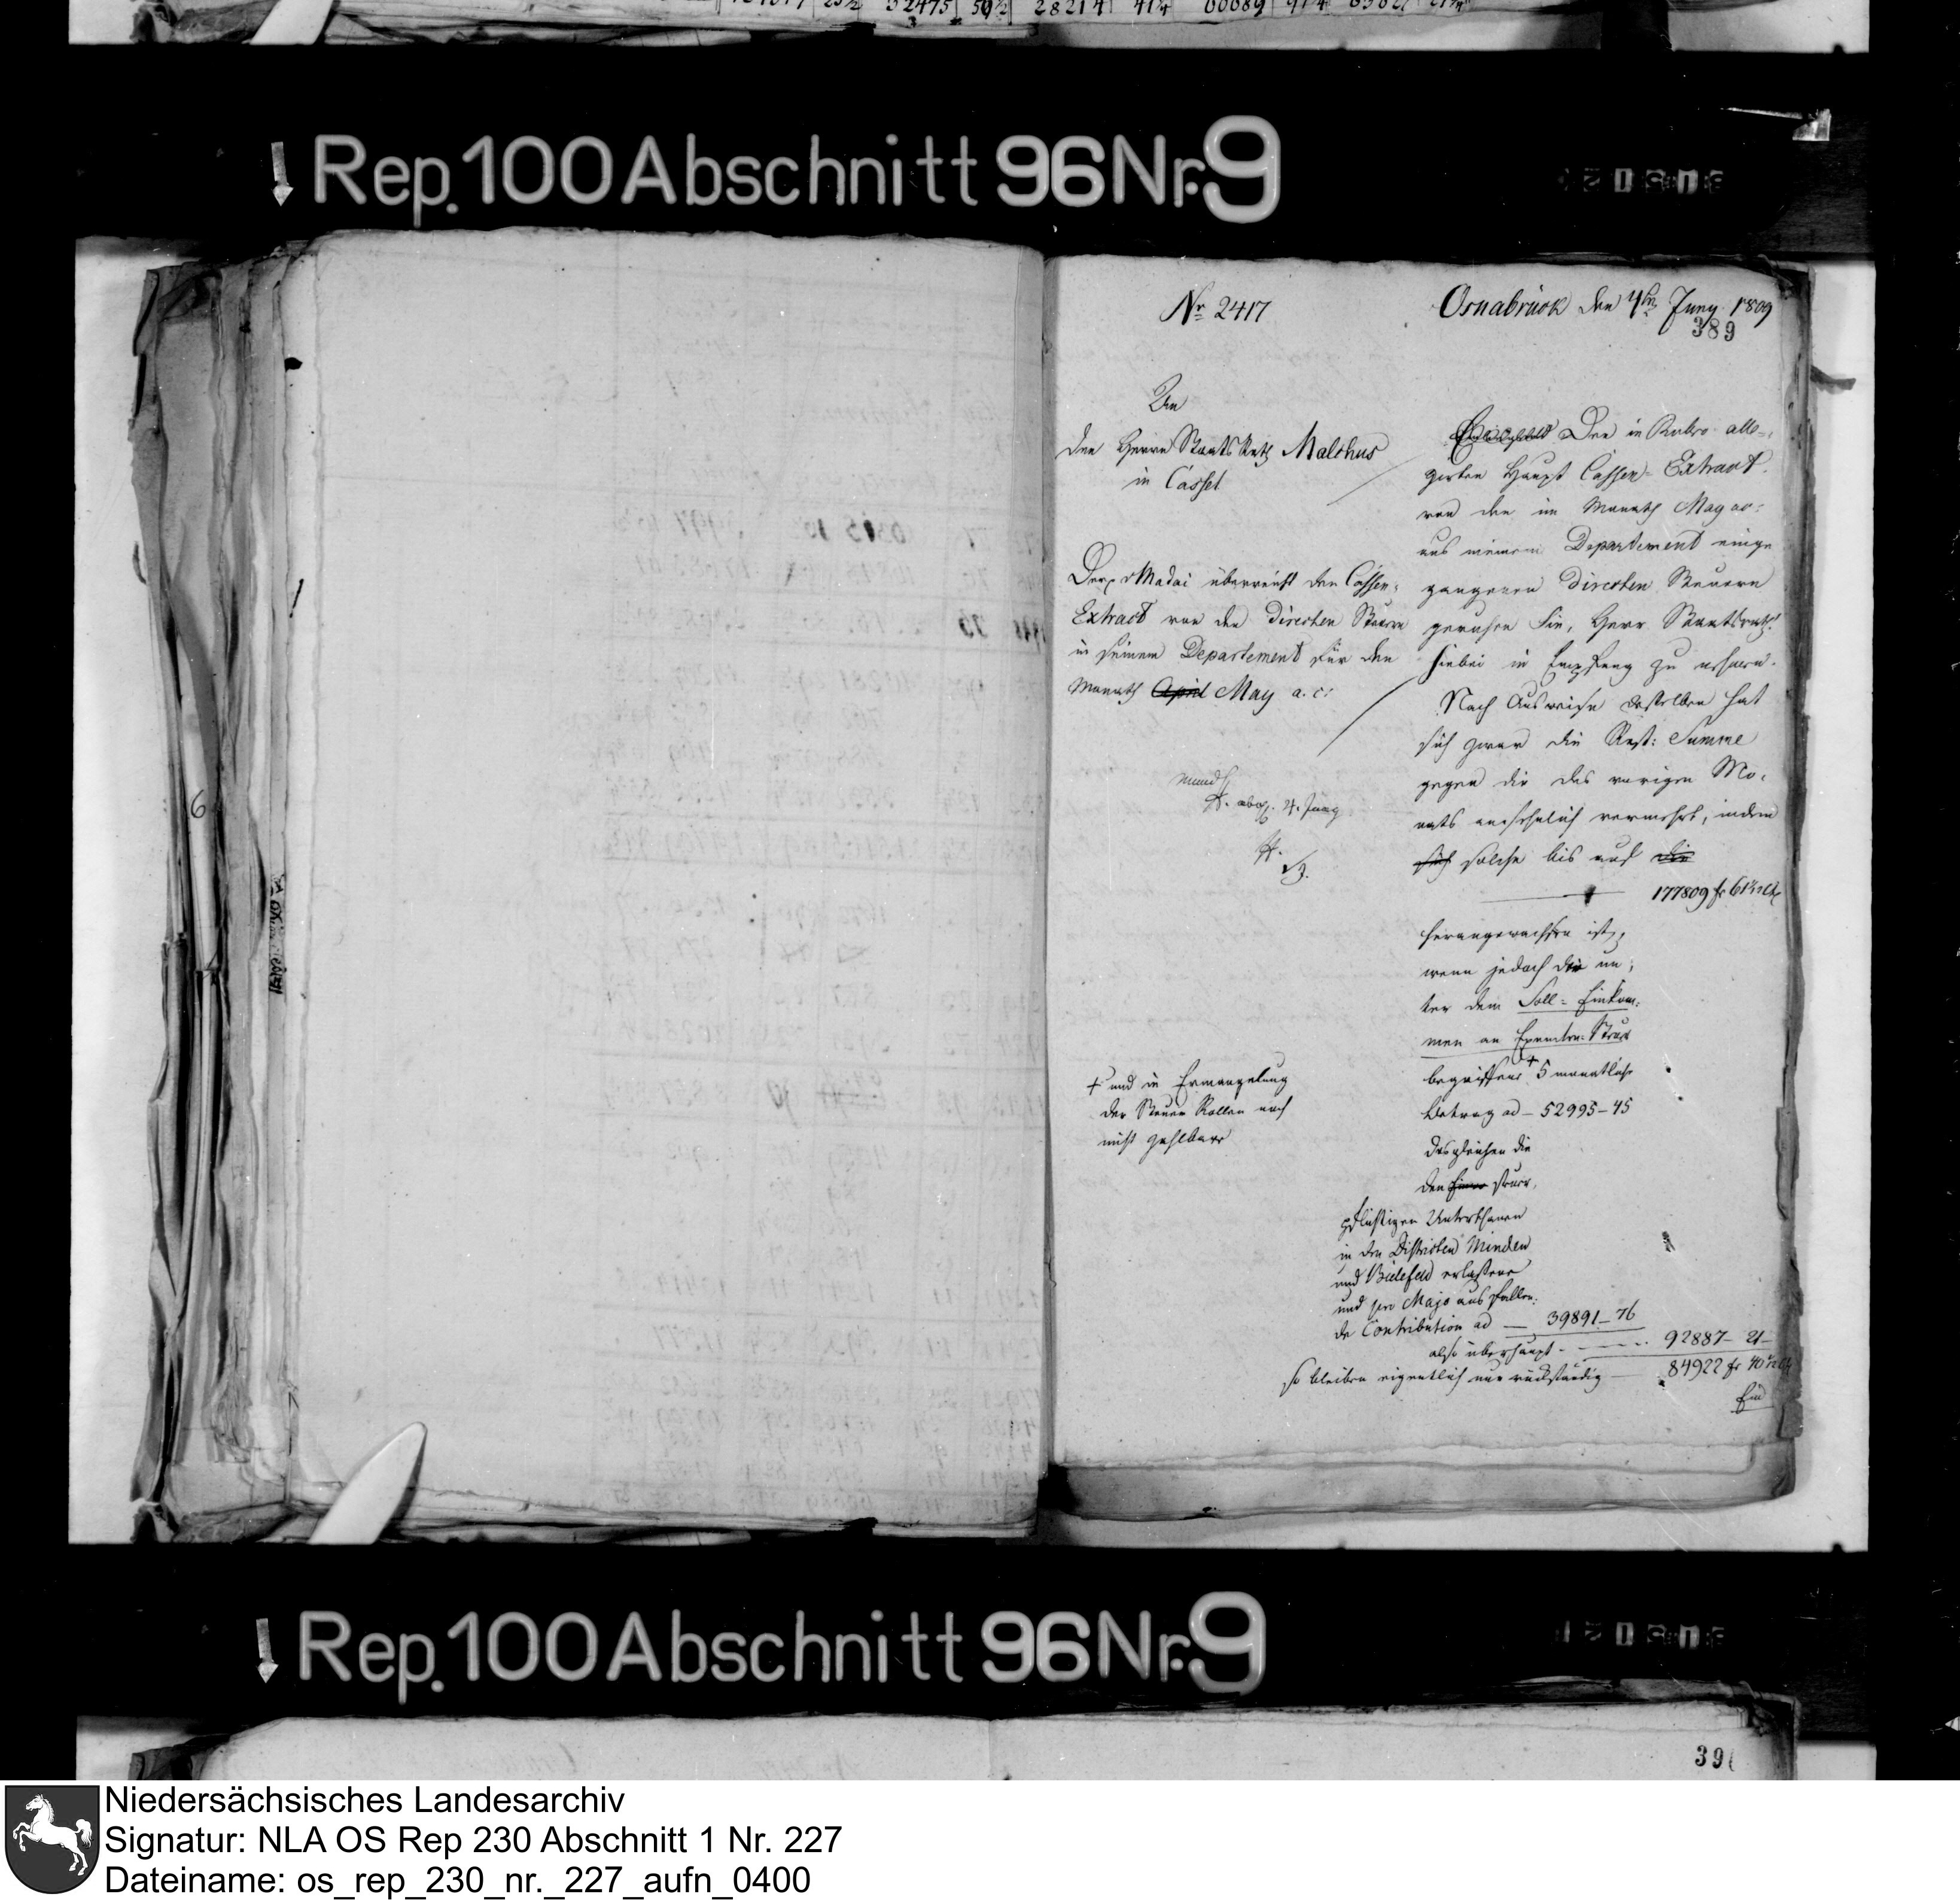 Rep. 100 Abschnitt 96 Nr. 9
Nr 2417
Osnabrück den 4ten Juny 1809
389
An
den Herrn StaatsRath Malchus
in Cassel
Der p. v Madai überreicht den Cassen-
Extract von den directen Steuern
in seinem Departement für den
Monath April May a. c:
mund.
abg. 4. Juny
+ und in Ermangelung
der Steuer Rollen noch
nicht zahlbare
Den in Rubro alle-
girten Haupt Cassen-Extract
von den im Monath May ac:
aus meinem Departement einge
gangenen directen Steuern
geruhen Sie, Herr Staatsrath!
hiebei in Empfang zu nehmen.
Nach Ausweise desselben hat
sich zwar die Rest: Summe
gegen die des vorigen Mo-
nats ansehnlich vermehrt, indem
sich solche bis auf die
177809 fr 61 1/2 Ct
herangewachsen ist,
wenn jedoch die un-
ter dem Soll-Einkom-
men an Exemten-Steuer
begriffene + 5 monatliche
Betrag ad – 52995–45
desgleichen die
den steuer-
pflichtigen Unterthanen
in den Districten Minden
und Bielefeld erlassene
und pro Majo ausfallen-
de Contribution ad — 39891–76
also überhaupt - 92887–21–
so bleiben eigentlich nur rückständig — 84922 fr 40 1/2 Ct
Rep. 100 Abschnitt 96 Nr. 9
39
6
Niedersächsisches Landesarchiv
Signatur: NLA OS Rep 230 Abschnitt 1 Nr. 227
Dateiname: os_rep_230_nr._227_aufn_0400